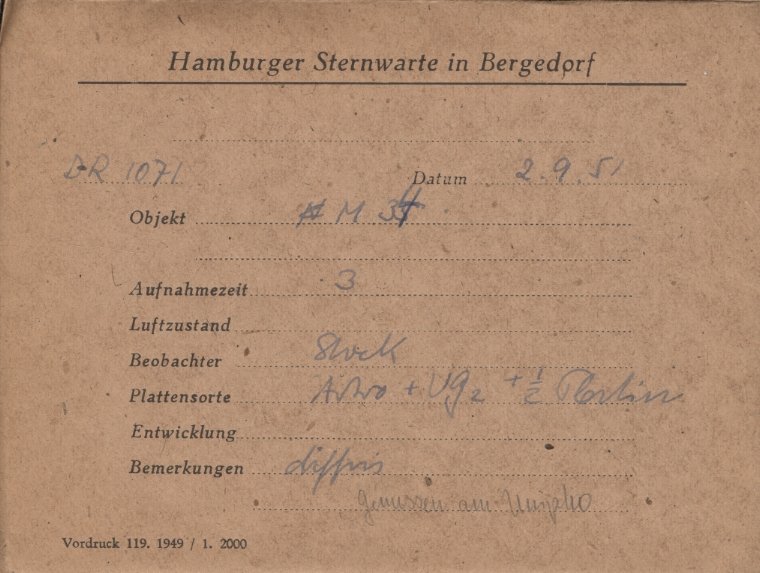 Hamburger Sternwarte in Bergedorf
DR 1071 Datum 2.9.51
Objekt M 34
Aufnahmezeit 3
Luftzustand
Beobachter Stock
Plattensorte Astro + UG2 + 1/2 Platin
Entwicklung
Bemerkungen diffus
Gemessen am
Vordruck 119. 1949 / 1. 2000